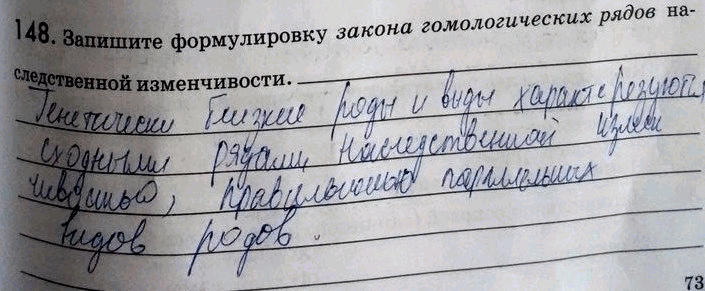 148. Запишите формулировку закона гомологических рядов на-
следственной изменчивости.
Генетически близкие роды и виды характеризуются
сходными рядами наследственной измен
чивостью, правильностью параллельных
видов родов.
73